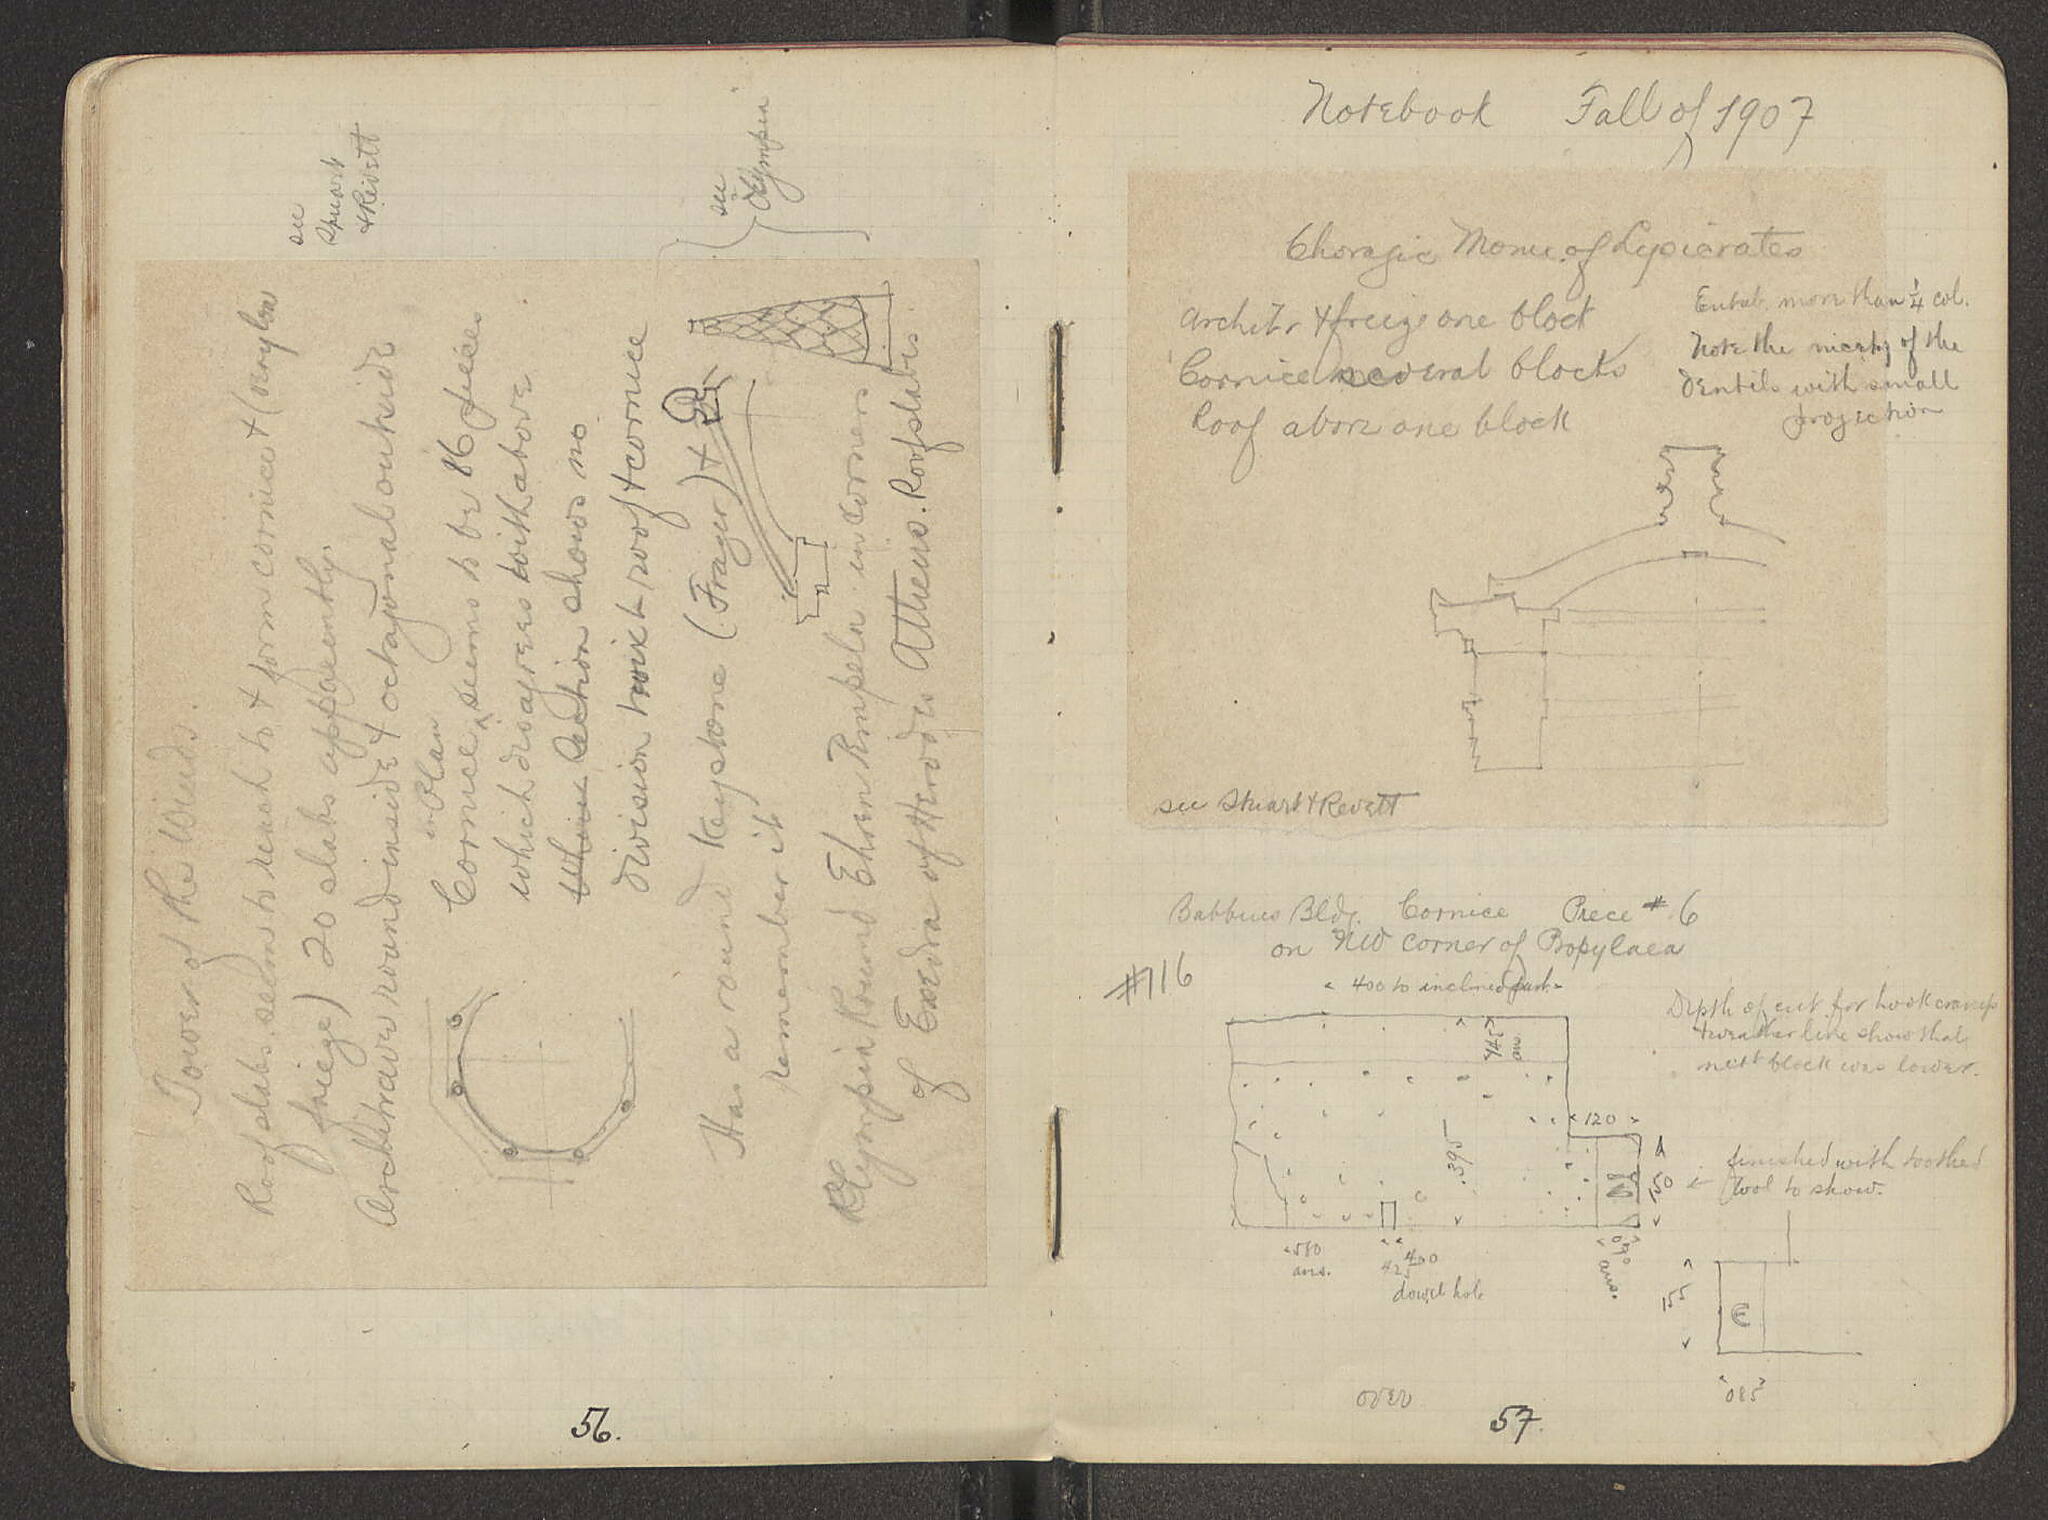 Tower of the Winds.
Roof slabs seem to reach to & form cornice & (very low
frieze) 20 slabs apparently.
Architrave round inside & octagonal outside
in Plan
Cornice seems to be 16 pieces
which disagrees with above
Section shows no
division twixt roof & cornice
Has a round Keystone (Frazer) &
remember it
Olympia Round Ehren Tempeln in corners
of Exedra of Herodes Atticus. Roof slabs
see
Stuart
& Revett
see
Olympia
56.
Notebook Fall of 1907
Choragic Monu. of Lysicrates
Archtr & frieze one block
Cornice several blocks
Roof above one block
Entab. more than 1/4 col.
Note the nicety of the
dentils with small
projection
see Stuart & Revett
Babbius Bldg. Cornice Piece # 6
on NW corner of Propylaea
#116
400 to inclined
Depth of cut for hook cramp
& weather line show that
next block was lower.
145
ans.
120
.395
150
finished with toothed
tool to show.
580
ans.
400
425
dowel hole
090
ans.
155
085
over
57.